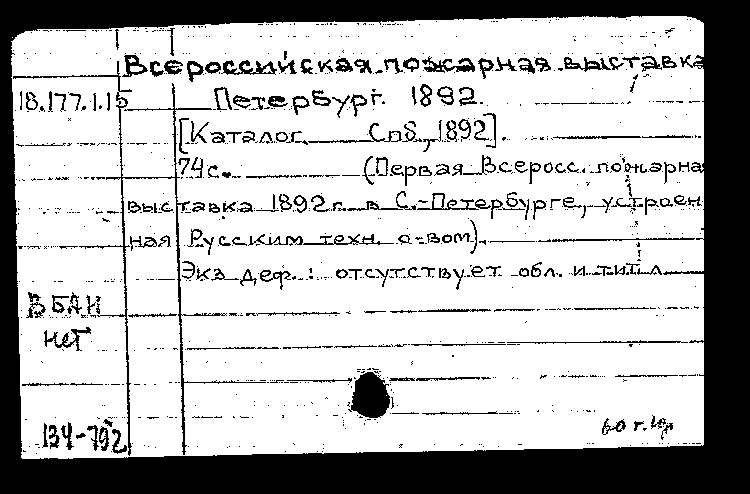 Всероссийская пожарная выставка
18.177.1.15 Петербург. 1892.
[Каталог. Спб., 1892].
74с. (Первая Всеросс. пожарна
выставка 1892г. в С.-Петербурге, устроен
ная Русским техн. о-вом).
Экз деф.: отсутствует обл. и тит л
В БАН
нет
134-792